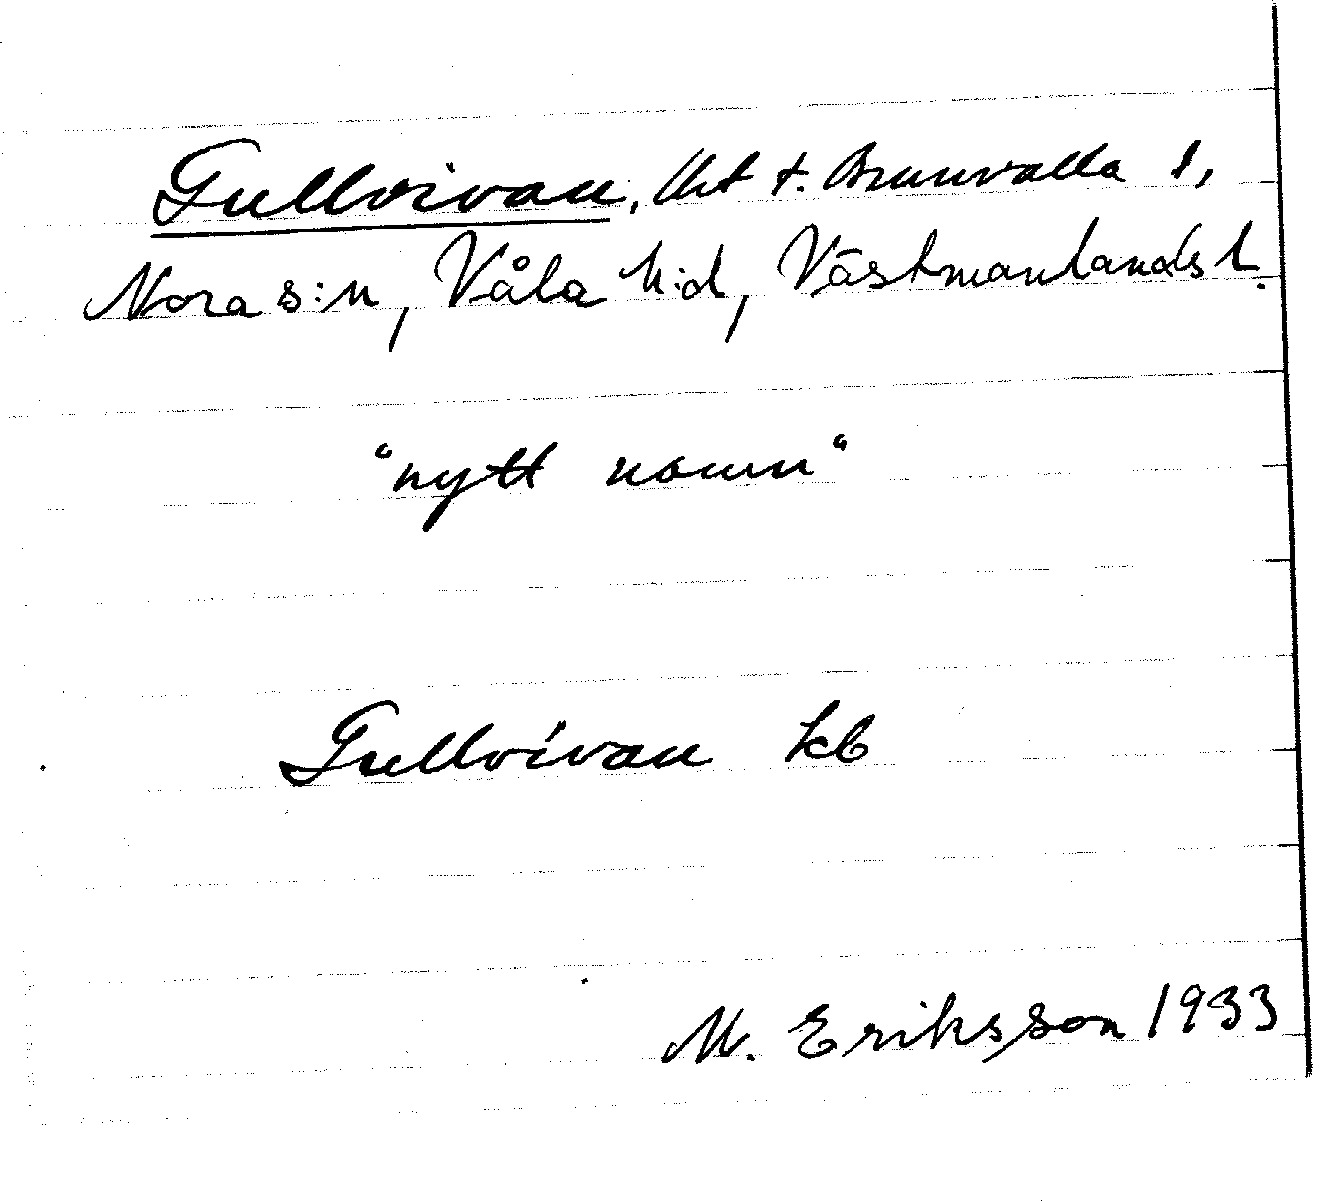 Gullvivan, lht t. Brunvalla 1,
Nora s:n, Våla h:d, Västmanlands l.
"nytt namn"
Gullvivan kb
M. Eriksson 1933